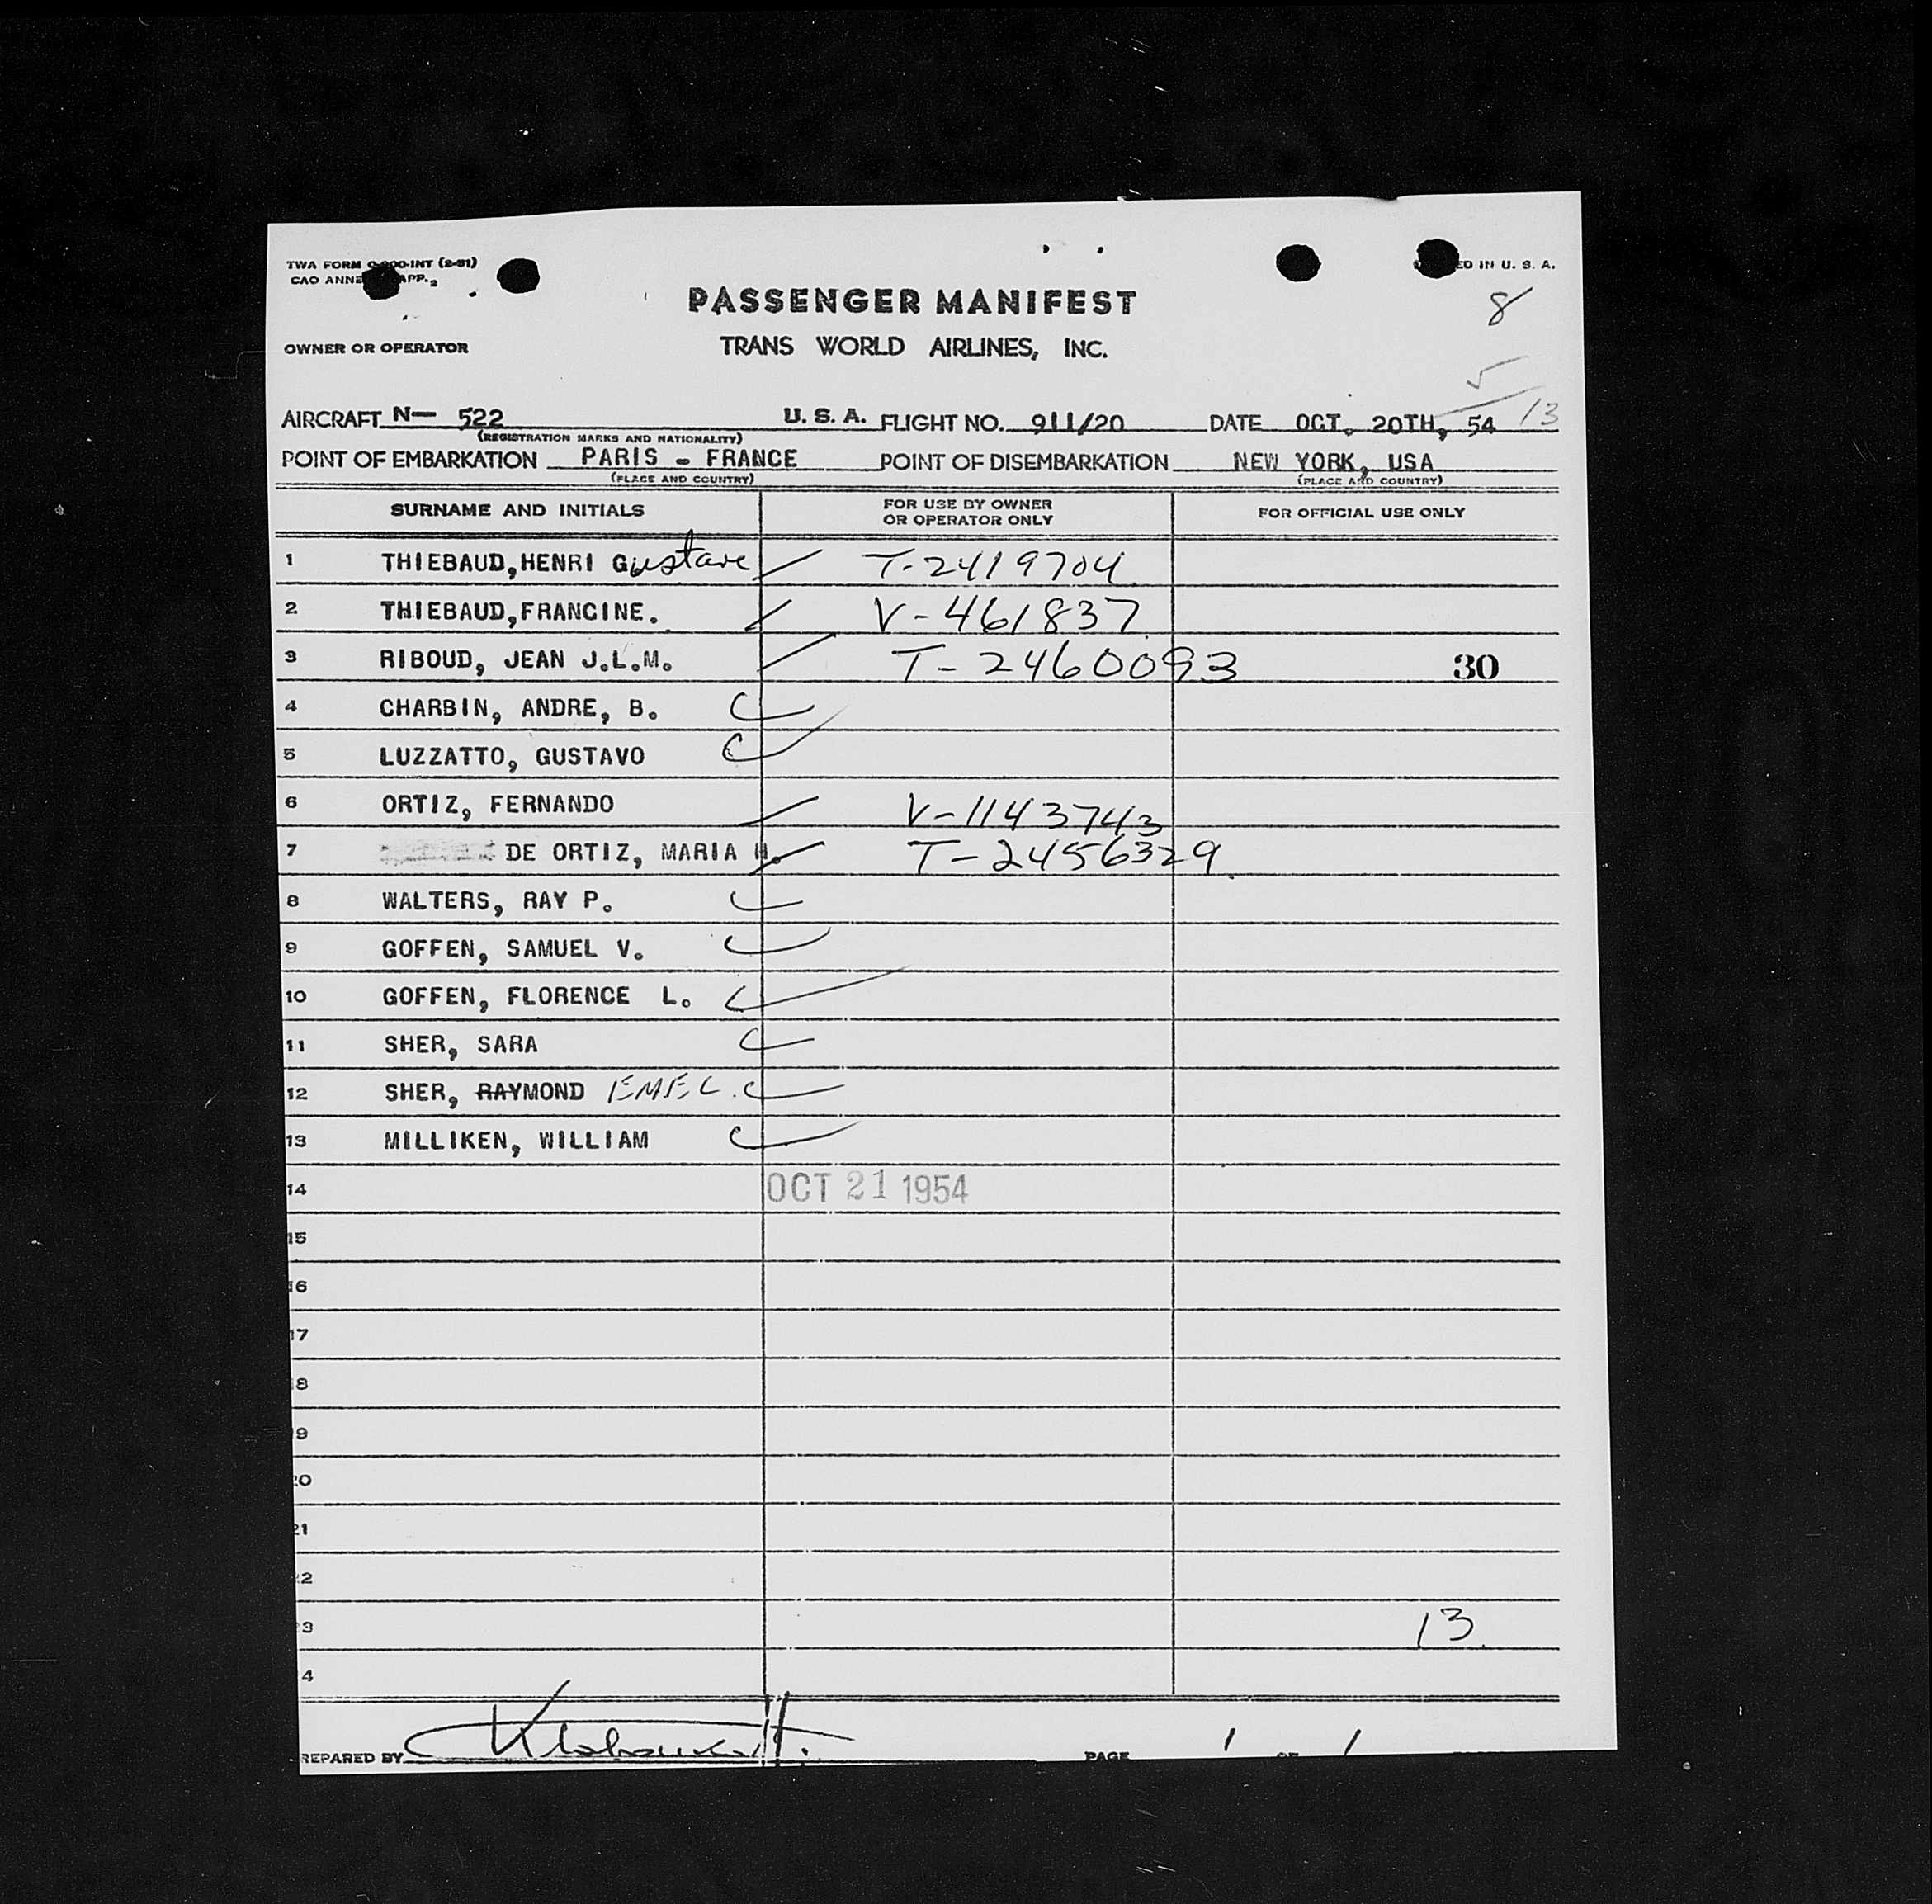 TWA FORM INT (2-51)
CAO APP. 2
IN U. S. A.
PASSENGER MANIFEST
8
OWNER OR OPERATOR TRANS WORLD AIRLINES, INC.
5
13
AIRCRAFT N— 522 U. S. A. FLIGHT NO. 911/20 DATE OCT. 20TH, 54
(REGISTRATION MARKS AND NATIONALITY)
POINT OF EMBARKATION PARIS - FRANCE POINT OF DISEMBARKATION NEW YORK, USA
(PLACE AND COUNTRY) (PLACE AND COUNTRY)
SURNAME AND INITIALS FOR USE BY OWNER OR OPERATOR ONLY FOR OFFICIAL USE ONLY
1 THIEBAUD,HENRI Gustave T-2419704
2 THIEBAUD,FRANCINE. V-461837
3 RIBOUD, JEAN J.L.M. T-2460093 30
4 CHARBIN, ANDRE, B.
5 LUZZATTO, GUSTAVO
6 ORTIZ, FERNANDO V-1143743
7 DE ORTIZ, MARIA H. T-2456329
8 WALTERS, RAY P.
9 GOFFEN, SAMUEL V.
10 GOFFEN, FLORENCE L.
11 SHER, SARA
12 SHER, RAYMOND EMEL.
13 MILLIKEN, WILLIAM
14 OCT 21 1954
15
16
17
18
19
20
21
22
23 13
24
PREPARED BY PAGE 1 OF 1